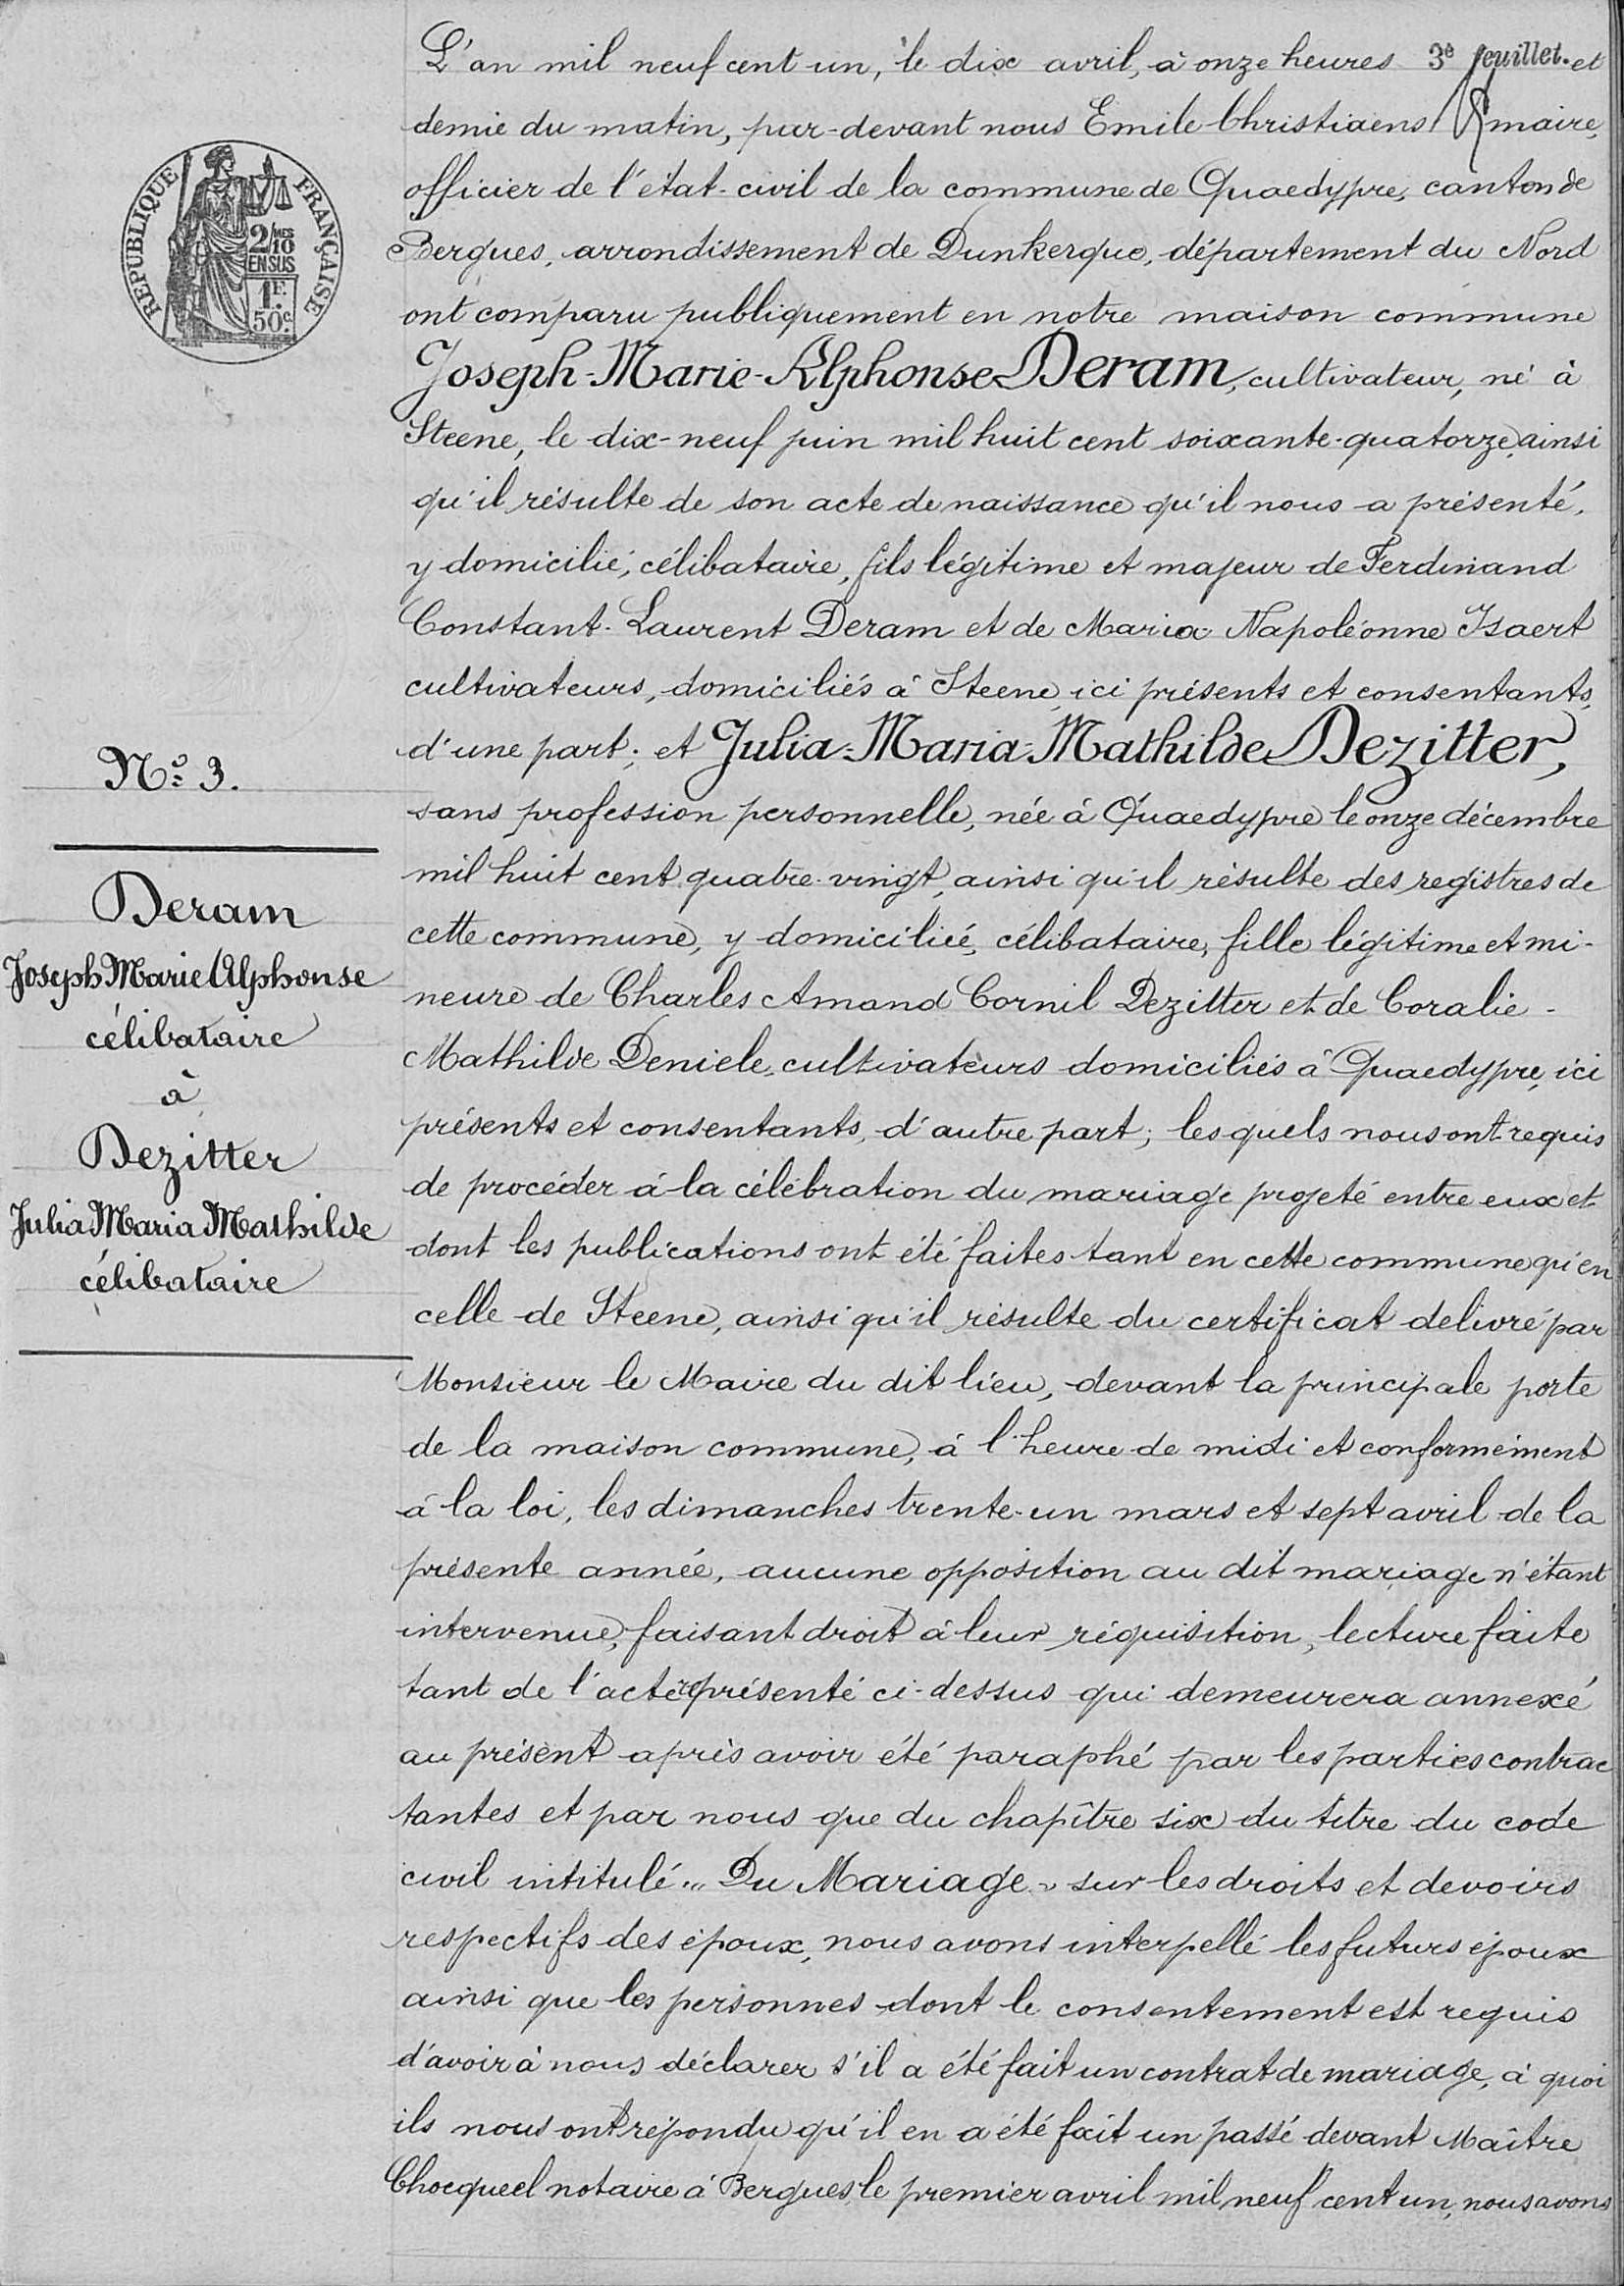 3e feuillet.
L'an mil neuf cent un, le dix avril, à onze heures et
demie du matin, par-devant nous Emile Christiaens maire,
officier de l'état-civil de la commune de Quaedypre, canton de
Bergues, arrondissement de Dunkerque, département du Nord
ont comparu publiquement en notre maison commune
Joseph-Marie-Alphonse Deram, cultivateur, né à
Steene, le dix-neuf juin mil huit cent soixante-quatorze, ainsi
qu'il résulte de son acte de naissance qu'il nous a présenté,
y domicilié, célibataire, fils légitime et majeur de Ferdinand
Constant-Laurent Deram et de Maria Napoléonne Isaert
cultivateurs, domiciliés à Steene, ici présents et consentants,
d'une part; et Julia-Maria-Mathilde Dezitter,
sans profession personnelle, née à Quaedypre le onze décembre
mil huit cent quatre-vingt, ainsi qu'il résulte des registres de
cette commune, y domiciliée, célibataire, fille légitime et mi-
neure de Charles Amand Cornil Dezitter et de Coralie-
Mathilde Deniele, cultivateurs domiciliés à Quaedypre, ici
présents et consentants, d'autre part; lesquels nous ont requis
de procéder à la célébration du mariage projeté entre eux et
dont les publications ont été faites tant en cette commune qu'en
celle de Steene, ainsi qu'il résulte du certificat delivré par
Monsieur le Maire du dit lieu, devant la principale porte
de la maison commune, à l'heure de midi et conformément
à la loi, les dimanches trente-un mars et sept avril de la
présente année, aucune opposition au dit mariage n'étant
intervenue, faisant droit à leur réquisition, lecture faite
tant de l'acte représenté ci-dessus qui demeurera annexé
au présent après avoir été paraphé par les parties contrac
tantes et par nous que du chapître six du titre du code
civil intitulé " Du Mariage " sur les droits et devoirs
respectifs des époux, nous avons interpellé les futurs époux
ainsi que les personnes dont le consentement est requis
d'avoir à nous déclarer s'il a été fait un contrat de mariage, à quoi
ils nous ont répondu qu'il en a été fait un passé devant Maître
Chocqueel notaire à Bergues, le premier avril mil neuf cent un, nous avons
RÉPUBLIQUE FRANÇAISE
2/MES
10
EN SUS
1F.
50c.
No 3.
Deram
Joseph Marie Alphonse
célibataire
à
Dezitter
Julia Maria Mathilde
célibataire